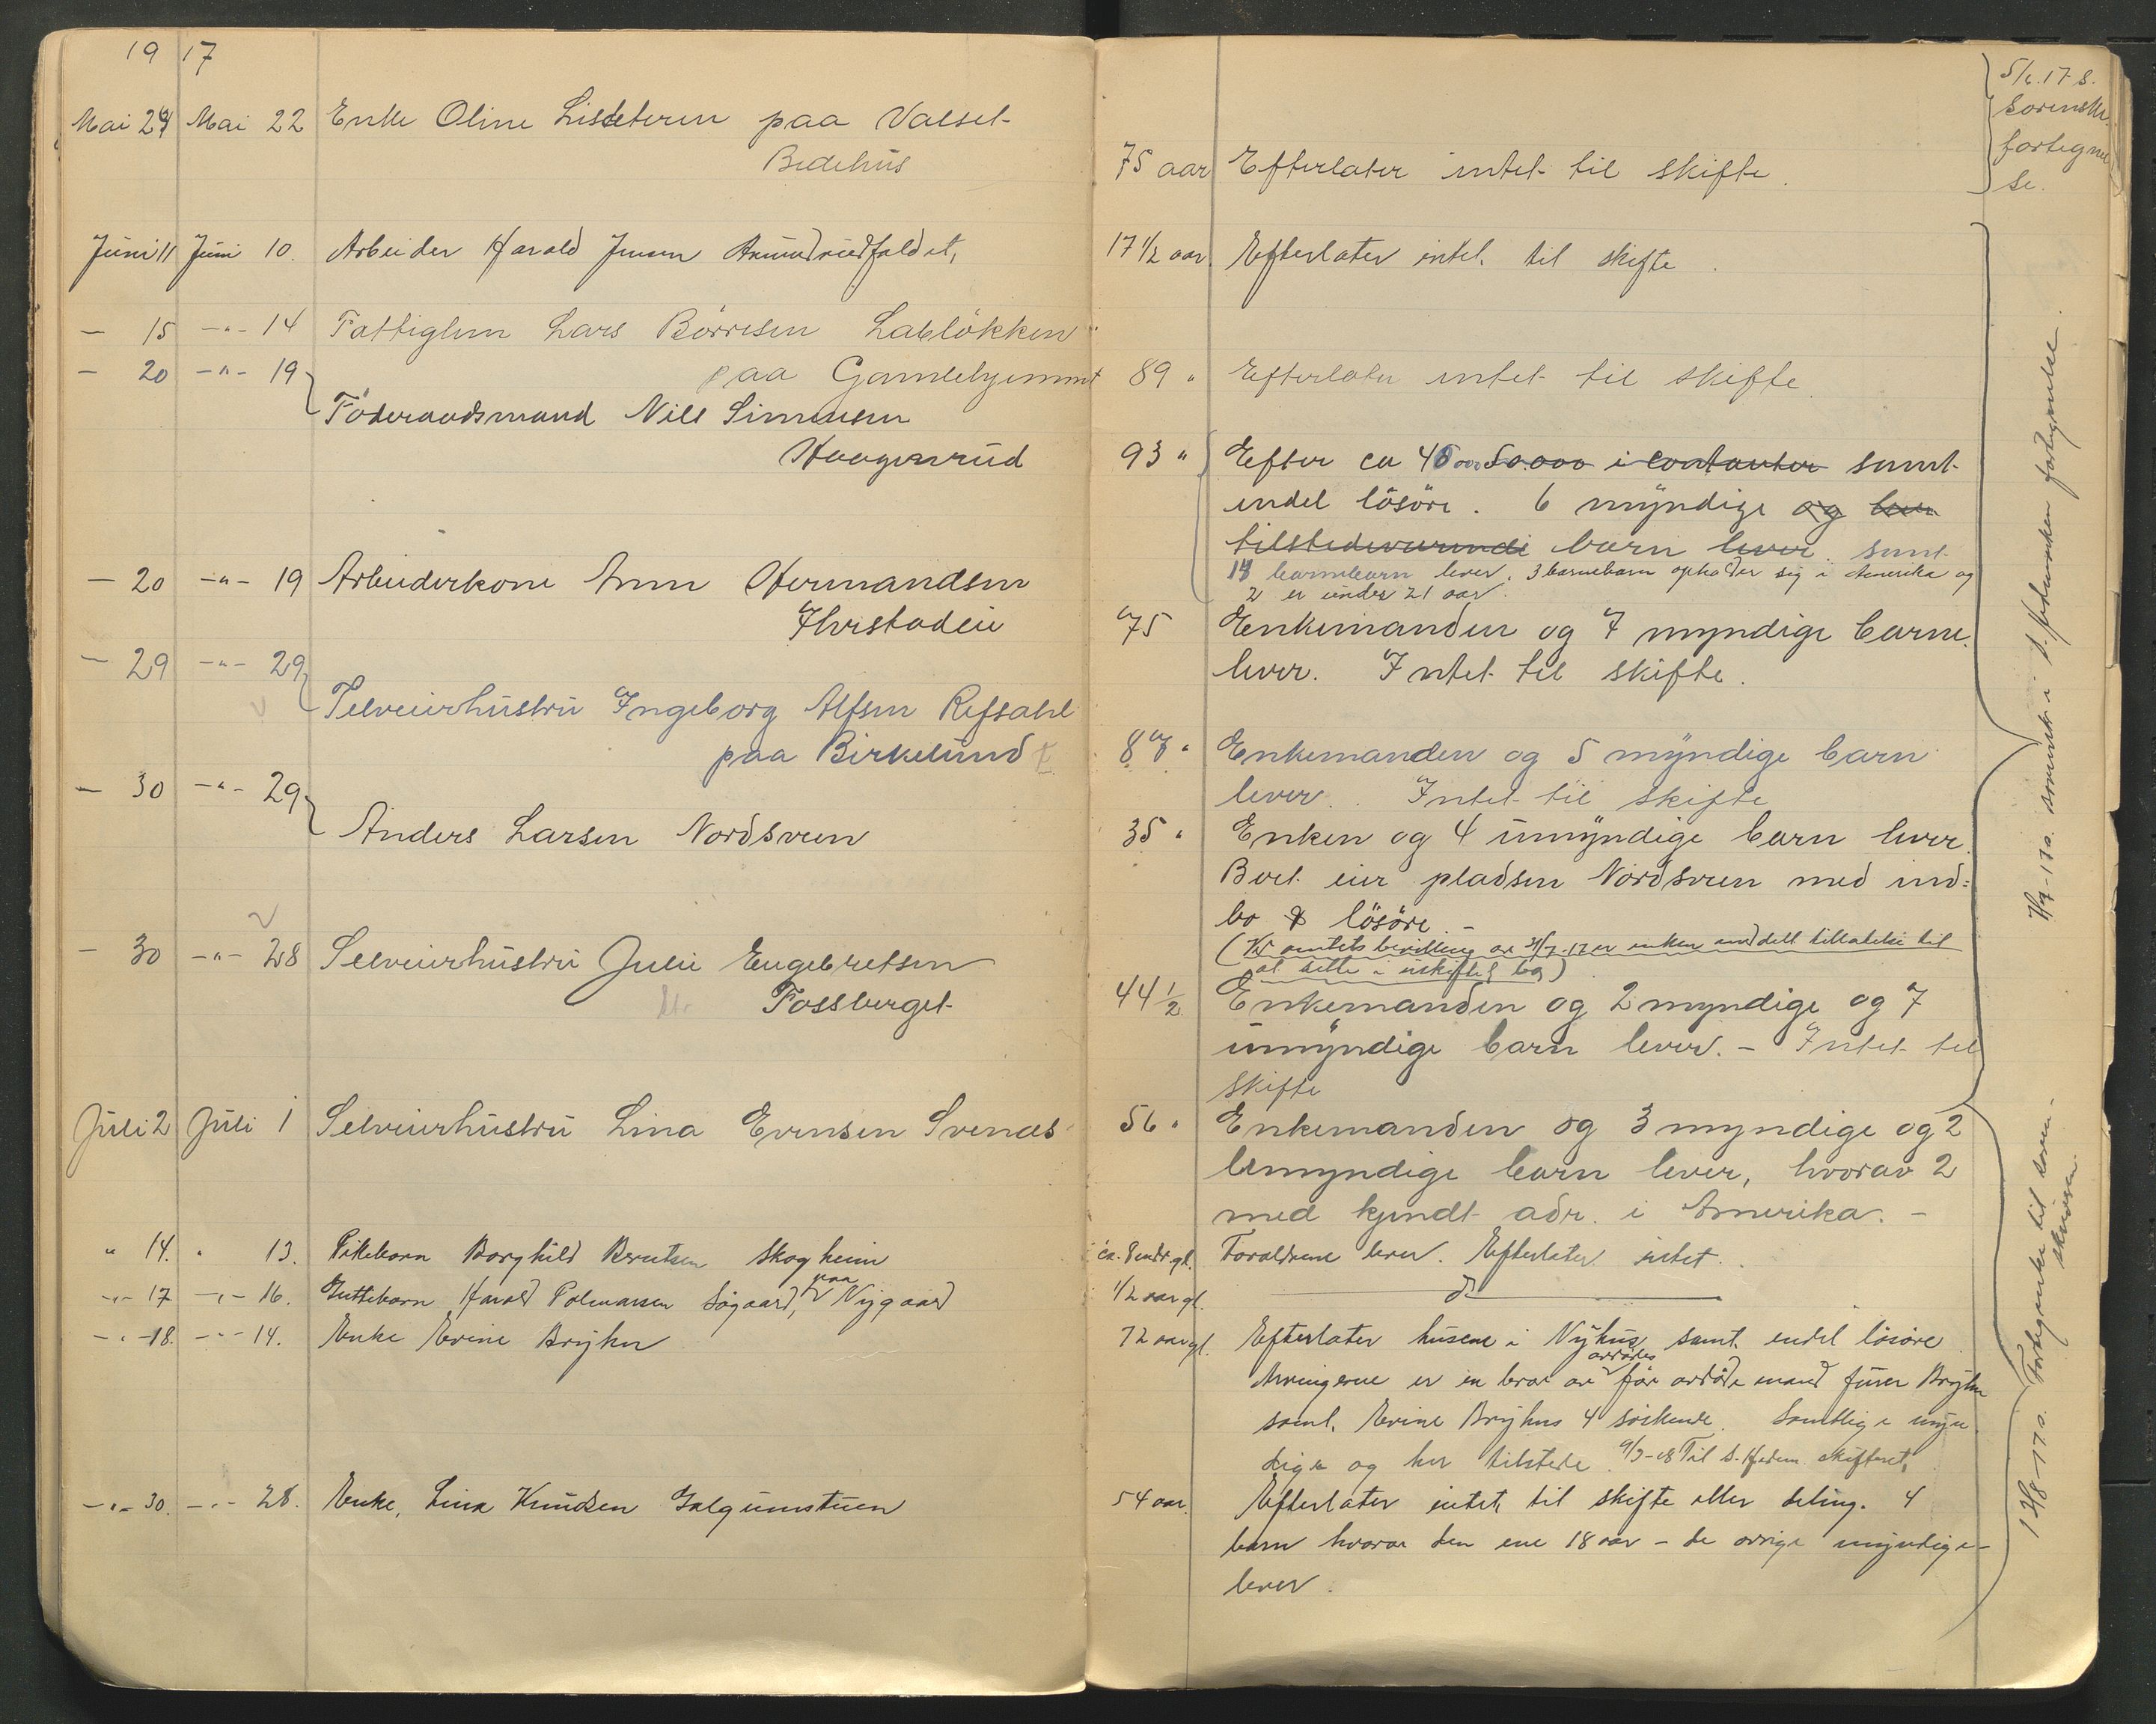 19 17
Mai 24 Mai 22 Enke Oline paa Valset-
Bedehus
75 aar Efterlater intet til skifte.
Juni 11 Juni 10. Arbeider Harald Jensen
17 1/2 aar. Efterlater intet til skifte.
— 15 -"- 14 Fattiglem Lars Börresen Lablökken
paa Gamlehjemmet 89 " Efterlater intet til skifte.
— 20 -"- 19 Föderaadsmand Nils Simensen
Haagenrud
93 " Efter ca 40000 50.000 i contanter samt
endel lösöre. 6 myndige og
tilstedeværende barn lever. samt
14 barnebarn lever. 3 barnebarn opholder sig i Amerika og
2 er under 21 aar.
— 20 -"- 19 Arbeiderkone Anne Hermandsen
75 Enkemanden og 7 myndige barn
lever. Intet til skifte.
— 29 -"- 29 Selveierhustru Ingeborg Alfsen Refsahl
paa Birkelund
87 " Enkemanden og 5 myndige barn
lever. Intet til skifte
— 30 -"- 29 Anders Larsen Nordsveen
35 " Enken og 4 umyndige barn lever.
Boet eier pladsen Nordsveen med ind=
bo & lösöre. -
(Ved amtets bevilling av 21/7.17 er enken meddelt tilladelse til
at sitte i uskiftet bo)
— 30 -"- 28 Selveierhustru Julie Engebretsen
Fossberget
44 1/2 Enkemanden og 2 myndige og 7
umyndige barn lever. - Intet til
skifte
Juli 2 Juli 1 Selveierhustru Lina Evensen Svenaes
56 " Enkemanden og 3 myndige og 2
umyndige barn lever, hvorav 2
med kjendt adr. i Amerika. -
" 14. " 13. Pikebarn Borghild Berntsen Skogheim
ca. 8 mdr gl. Foraldrene lever. Efterlater intet.
-"- 17 -"- 16. Guttebarn Harald Palmarsen Sögaard, paa Nygaard
1/2 aar gl. do
-"- 18. -"- 14. Enke Evine Bryhn
72 aar gl. Efterlater husene i Nyhus samt endel lösöre
Arvingerne er en bror av avdödes för avdöde mand Juver Bryhn
samt. Evine Bryhns 4 söskende. Samtlige myn
dige og her tilstede. 9/9-18 Til S. Hedem. skifteret.
-"- 30. -"- 28. Enke, Lina Knudsen Galgumstuen
54 aar. Efterlater intet til skifte eller deling. 4
barn hvorav den ene 18 aar - de övrige umyndige -
lever.
5/6.17 S.
Sorenskr.
fortegnel
se.
fortegnelse.
Fortegnelse til soren-
skriveren.